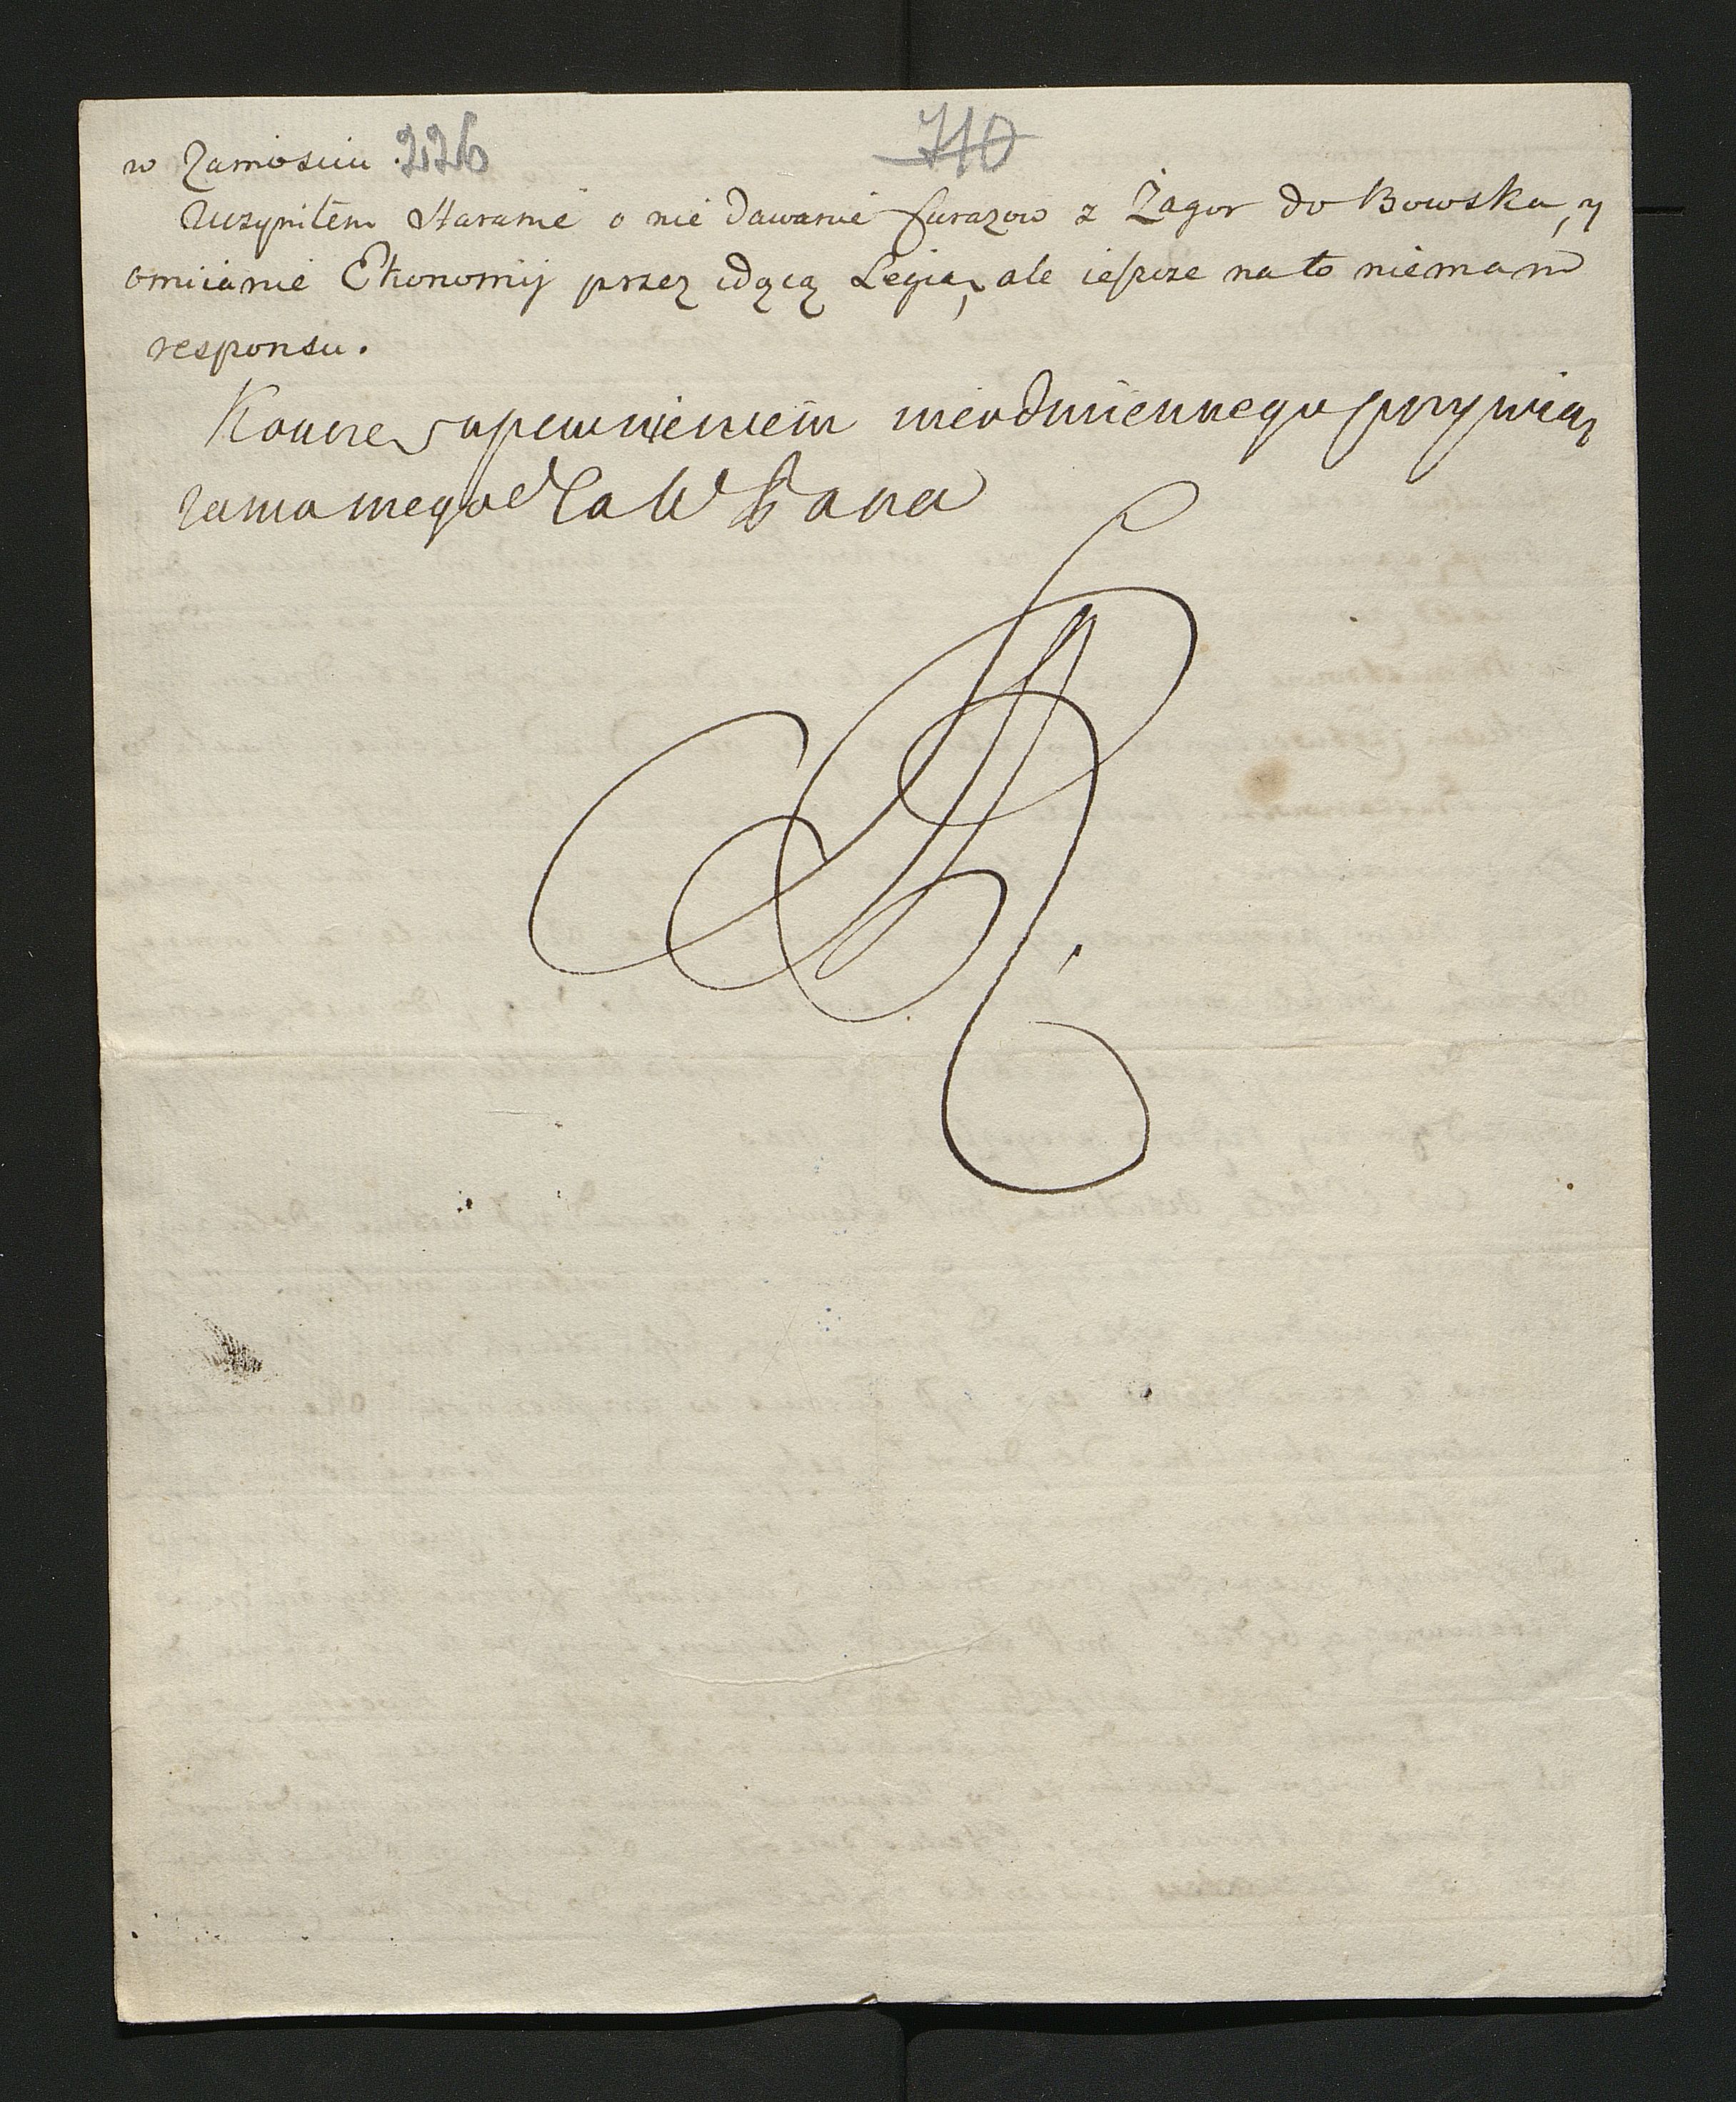 w Zamosciu . 226 710
Uczyniłem Staranie o nie dawanie furazow z Żagor do Bowska, y
omiianie Ekonomij przez idącą Legią, ale ieszcze na to niemam
responsu.
Koncze zapewnieniem nieodmiennego przywią
zania mego dla W Pana